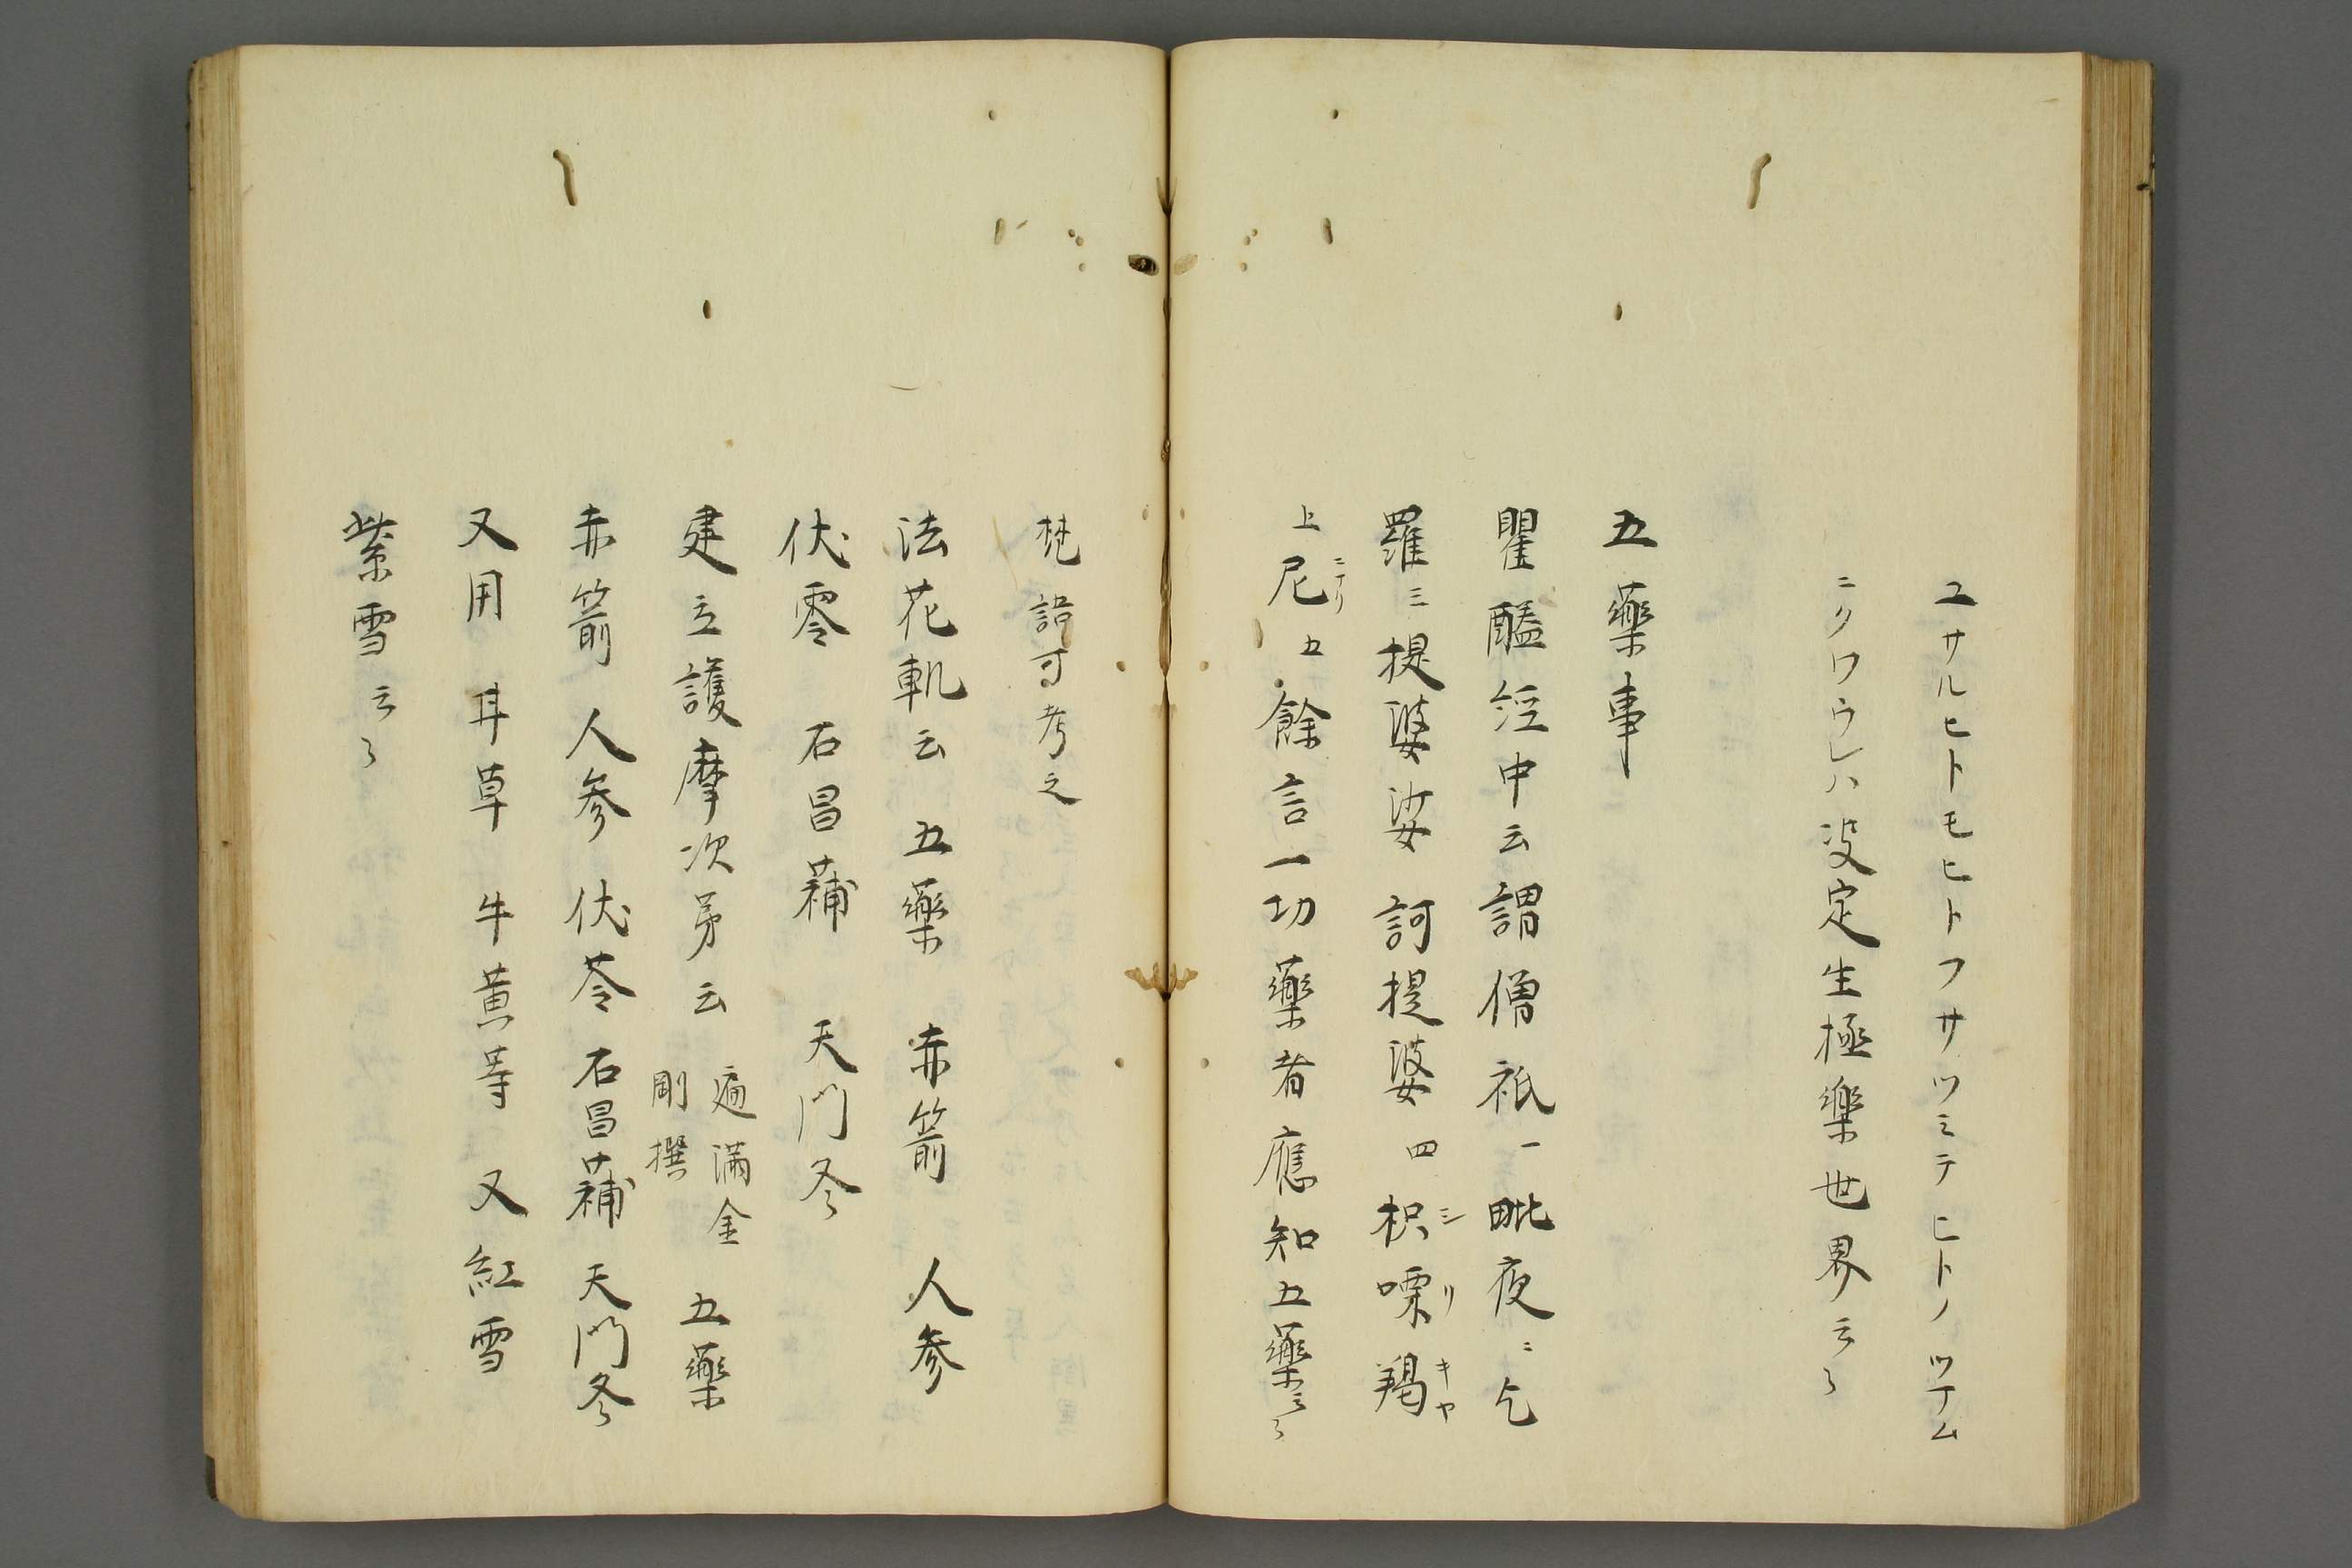 ユサルヒトモヒトフサツミテヒトノツアム
ニクワウレハ决定生極樂世界云〻
五藥事
瞿醯經中云謂僧祇一毗夜二乞
羅三提婆娑訶提婆四枳嘌羯
シリキヤ
上尼五餘言一切藥者應知五藥云〻
ニナリ
梵語可考之
法花軌云五藥赤箭人参
伏零石昌蒲天門冬
建立護摩次第云遍満金剛撰五藥
赤箭人参伏苓石昌蒲天門冬
又用耳草牛黄等又紅雪
紫雪云〻